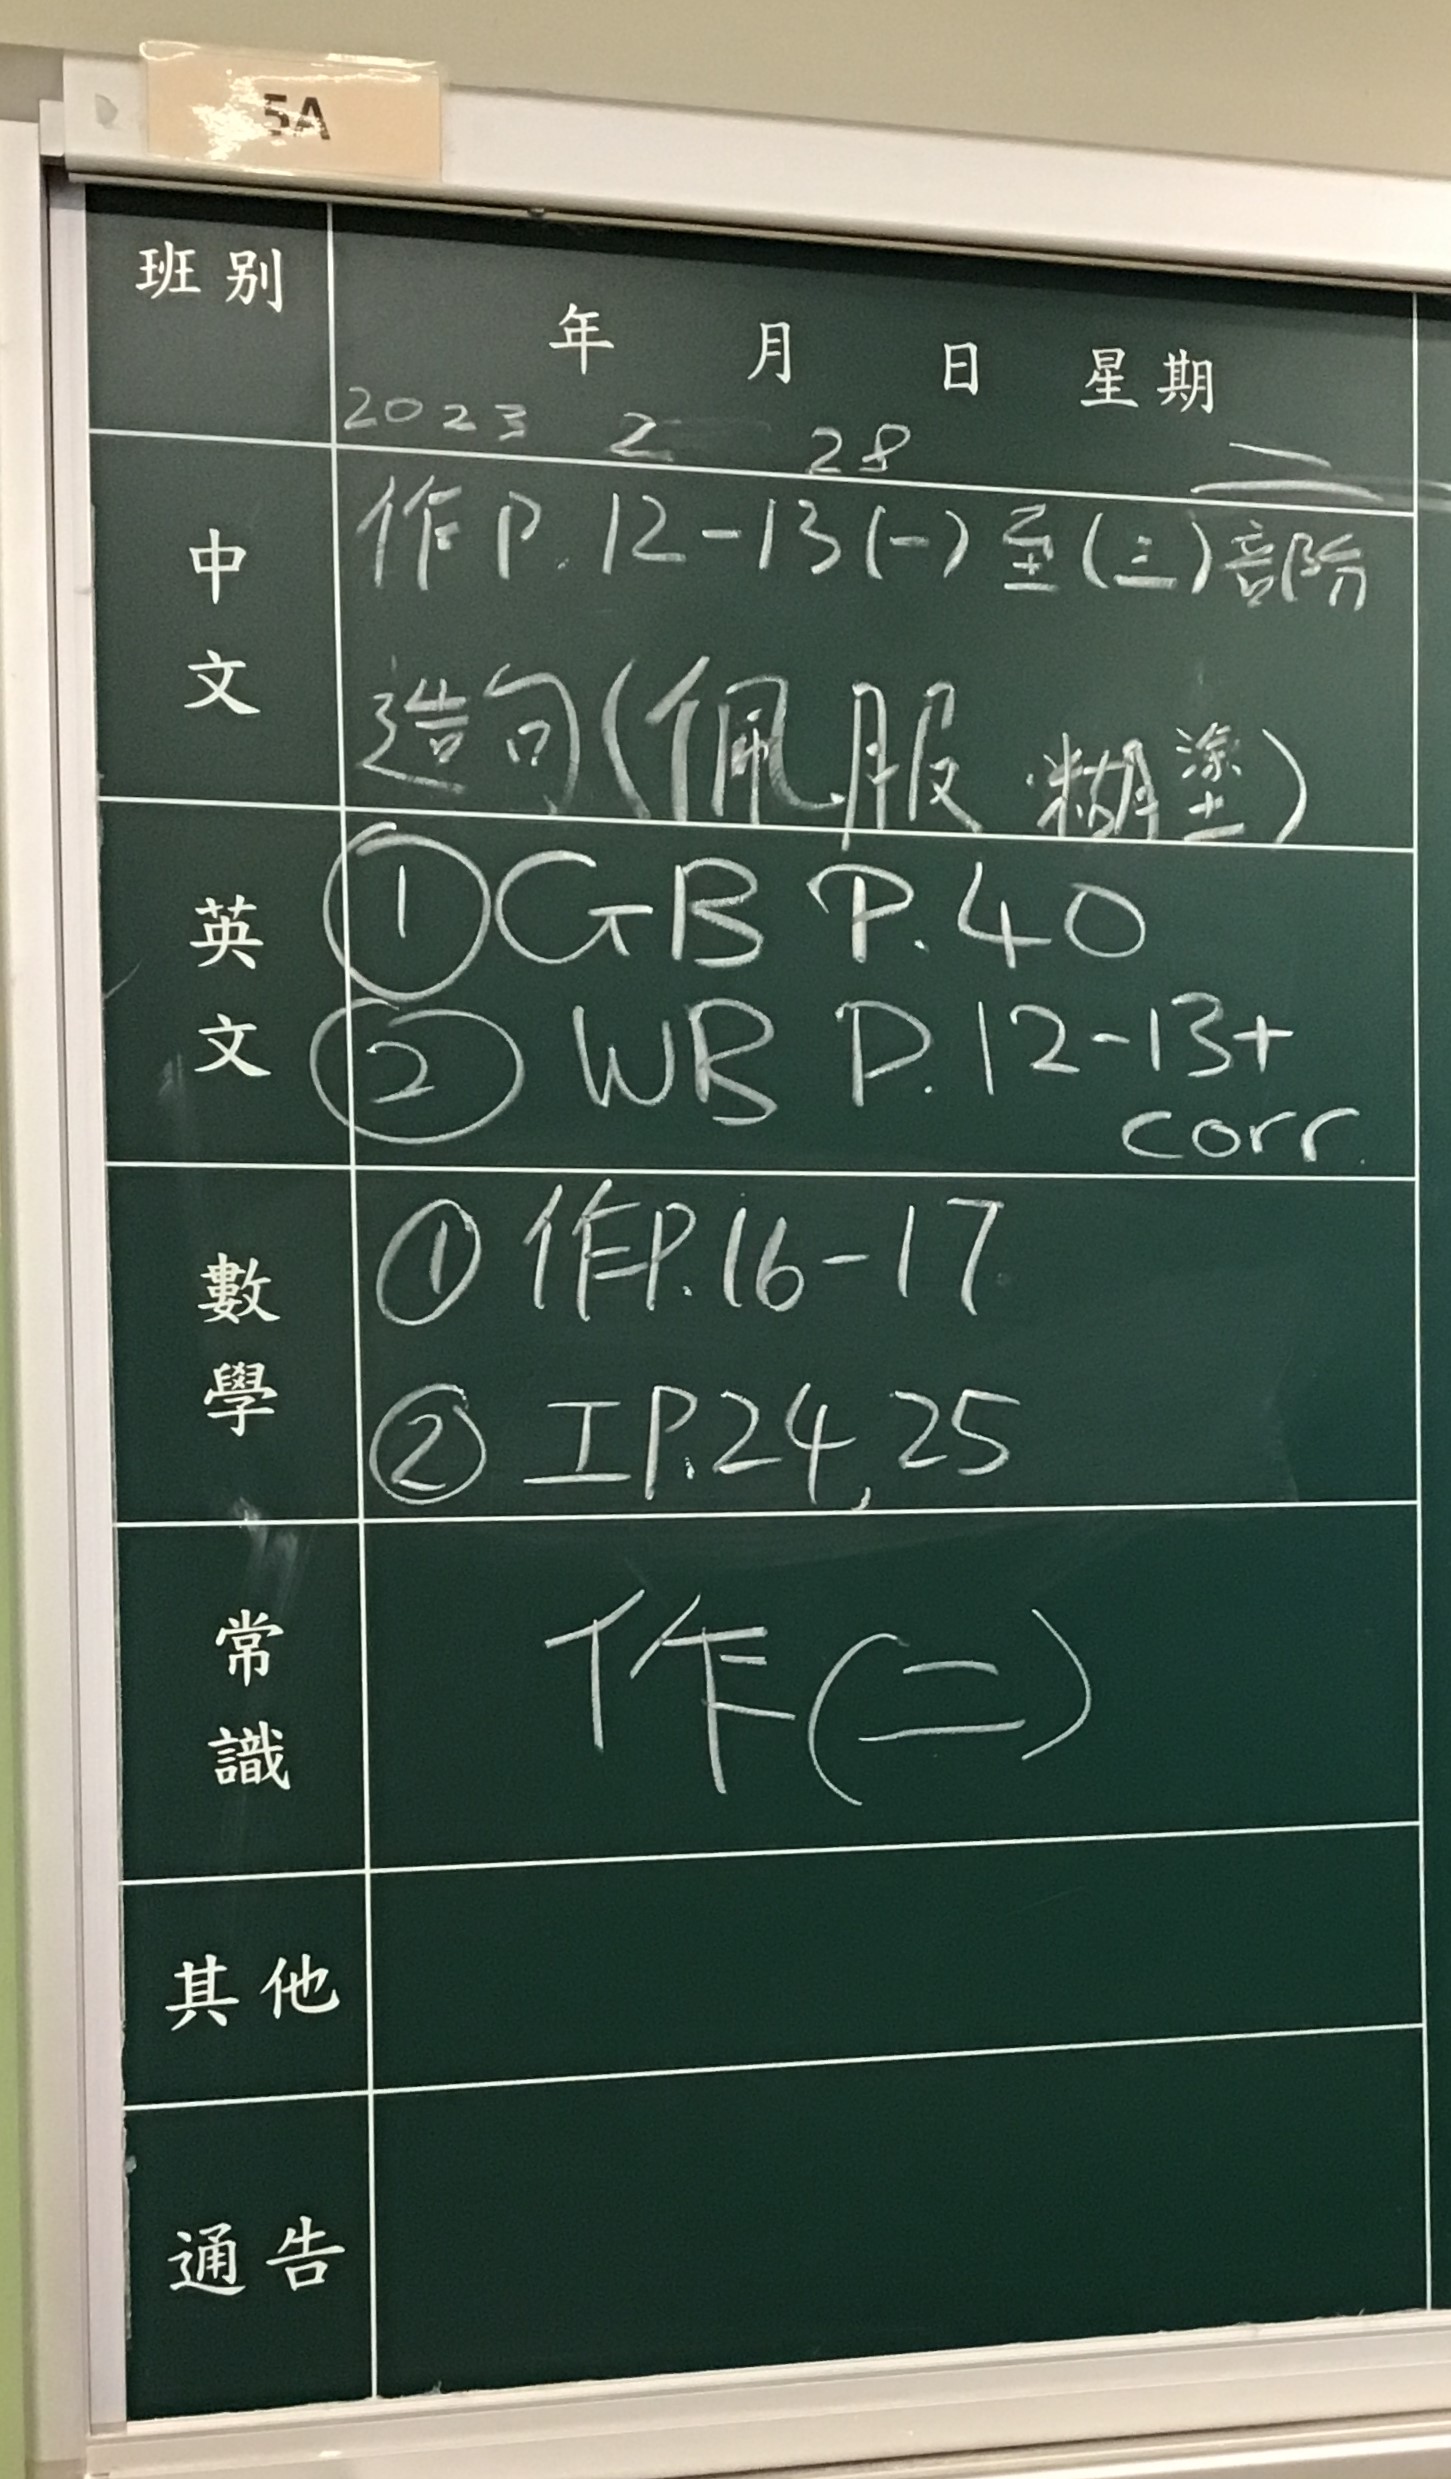 5A
班別
年 月 日 星期
2023 2 28 二
中文
作P.12-13(一)至(三)部阶
造句(佩服 糊塗)
英文
① GB P.40
② WB P.12-13+
corr.
數學
① 作P.16-17
② 工P.24,25
常識
作(二)
其他
通告